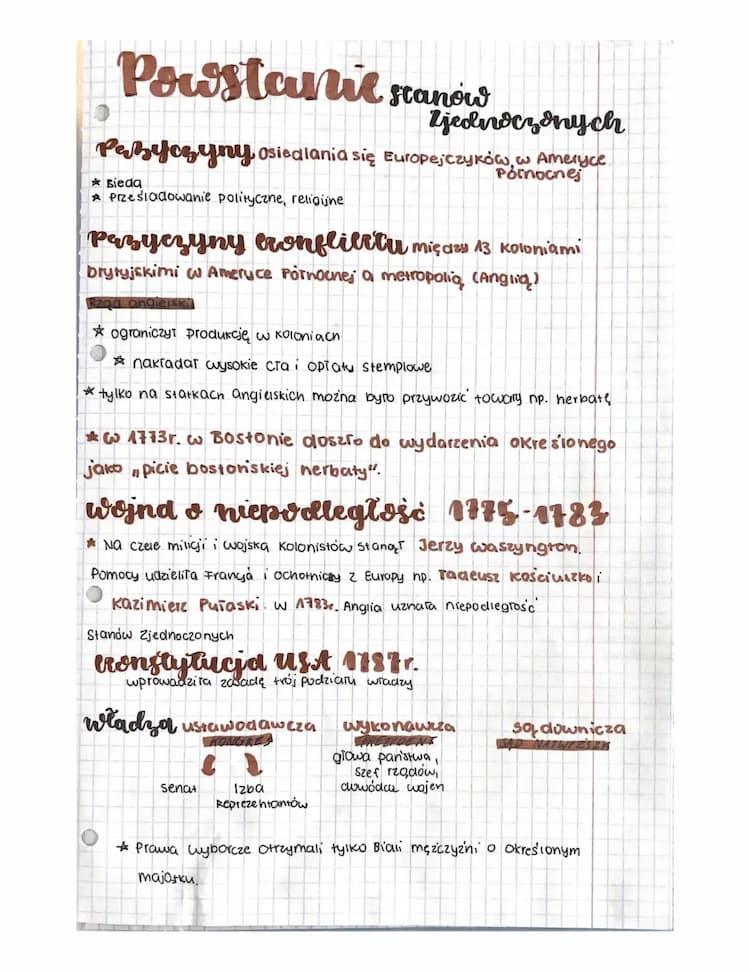 Powstanie stanów
Zjednoczonych
Przyczyny osiedlania się Europejczyków w Ameryce
Północnej
* Bieda
* Prześladowanie polityczne, religijne
Przyczyny konfliktu między 13 koloniami
brytyjskimi w Ameryce Północnej a metropolią (Anglią)
Rząd angielski
* ograniczył produkcję w koloniach
* nakładał wysokie cła i opłaty stemplowe
* tylko na statkach angielskich można było przywozić towary np. herbatę
* w 1773r. w Bostonie doszło do wydarzenia określonego
jako „picie bostońskiej herbaty".
Wojna o niepodległość 1775-1783
* Na czele milicji i wojska kolonistów stanął Jerzy Waszyngton.
Pomocy udzieliła Francja i ochotnicy z Europy np. Tadeusz Kościuszko i
Kazimierz Pułaski. w 1783r. Anglia uznała niepodległość
Stanów Zjednoczonych
Konstytucja USA 1787r.
wprowadziła zasadę trój podziału władzy
Władza ustawodawcza wykonawcza sądownicza
KONGRES PREZYDENT SĄD NAJWYŻSZY
głowa państwa,
szef rządów,
dowódca wojen
senat Izba
Reprezentantów
* Prawa wyborcze otrzymali tylko Biali mężczyźni o określonym
majątku.